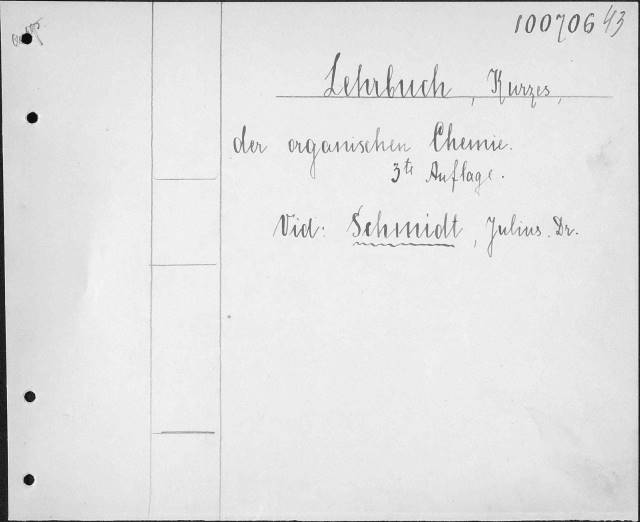 100706 43
Lehrbuch, Kurzes,
der organischen Chemie.
3te Auflage.
Vid: Schmidt, Julius. Dr.